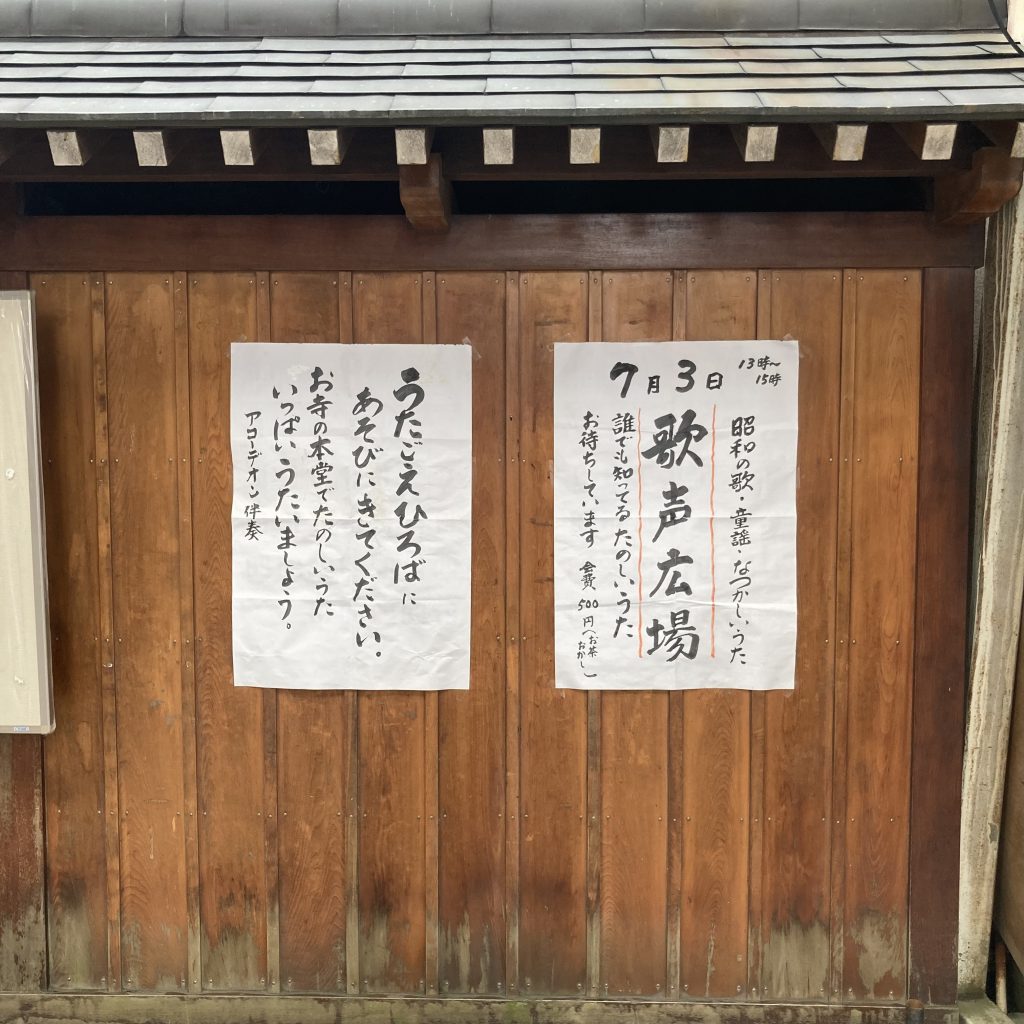 7月3日
13時〜
15時
昭和の歌・童謡・なつかしいうた
歌声広場
誰でも知ってるたのしいうた
お待ちしています 会費 500円(お茶
おかし)
うたごえひろばに
あそびにきてください。
お寺の本堂でたのしいうた
いっぱいうたいましょう。
アコーデオン伴奏